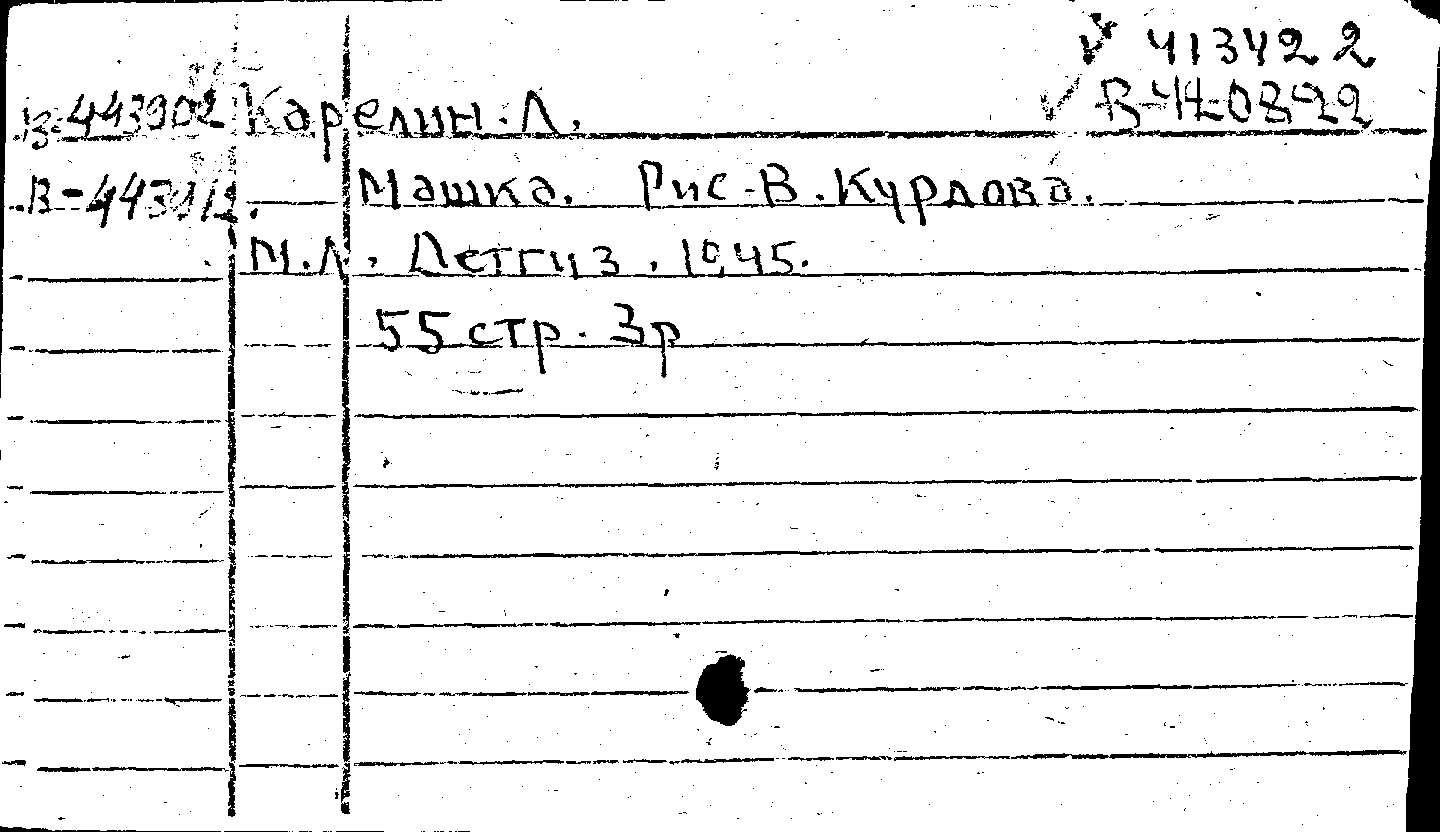 ✓ 413422
✓ В-420822
В-443902 Карелин. Л.
Машка. Рис-В. Курдова.
М.Л. Детгиз. 1945.
55 стр. 3р